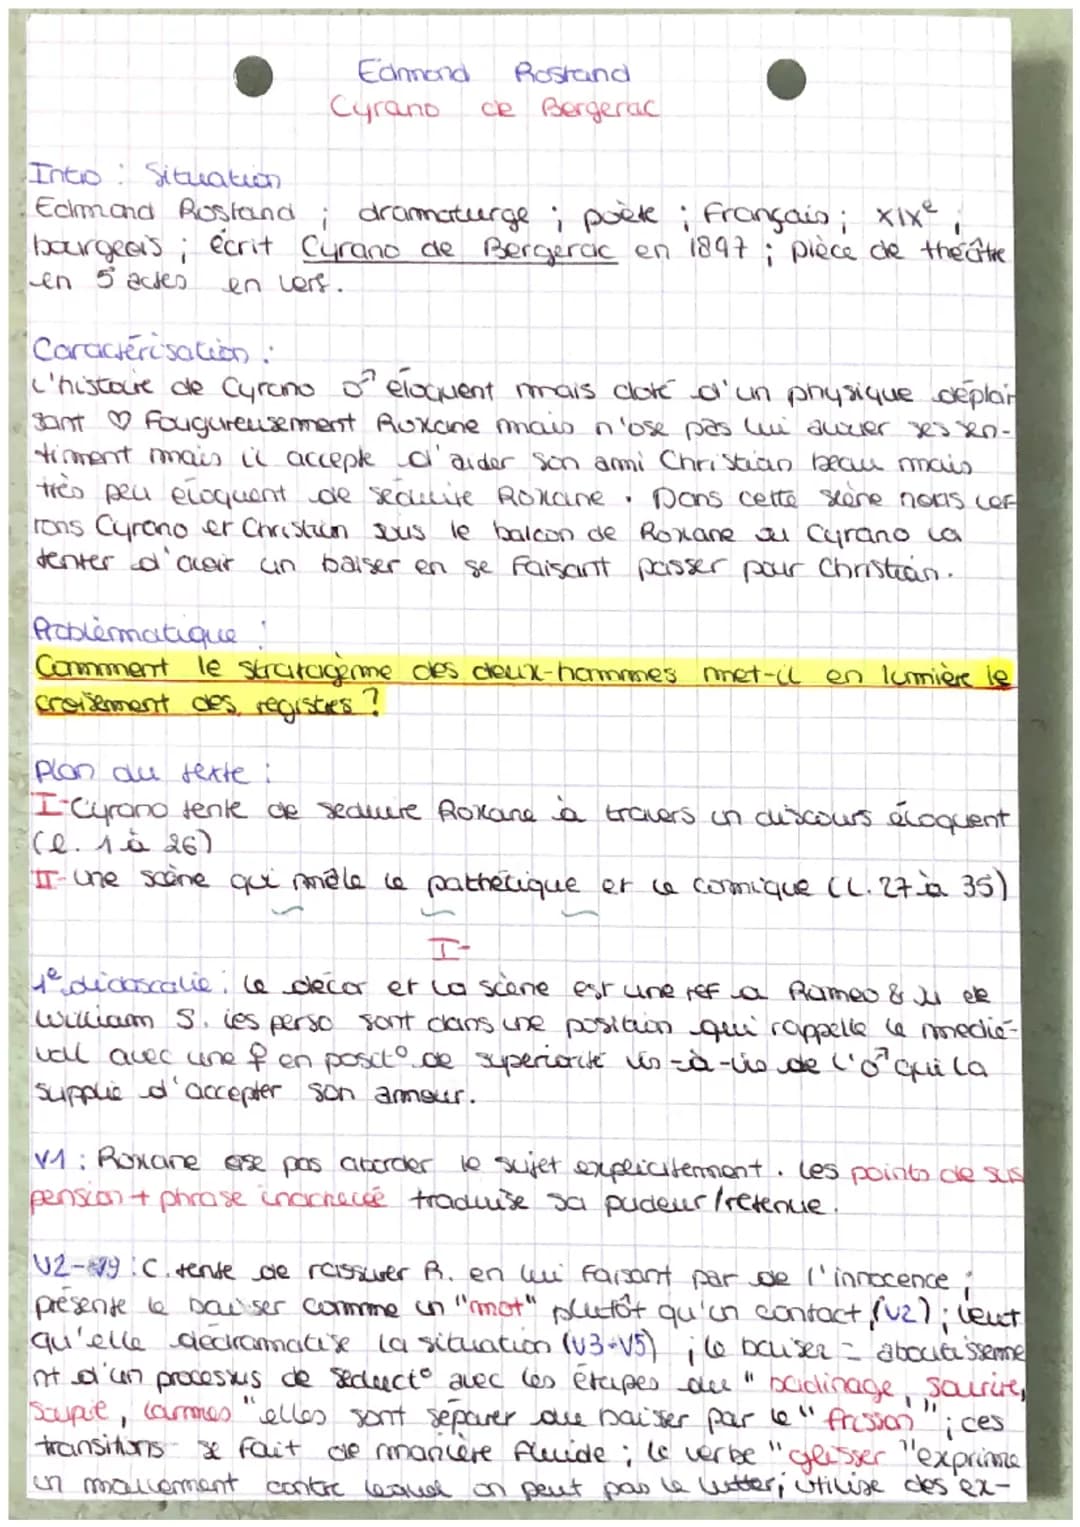 Edmond Rostand
Cyrano de Bergerac
Intro : Situation
Edmond Rostand ; dramaturge ; poète ; Français ; XIXe ;
bourgeois ; écrit Cyrano de Bergerac en 1897 ; pièce de théâtre
en 5 actes en vers.
Caractérisation :
L'histoire de Cyrano ♂ éloquent mais doté d'un physique déplai
sant ♡ Fougureusement Roxane mais n'ose pas lui avouer ses sen-
timent mais il accepte d'aider son ami Christian beau mais
très peu éloquent de séduire Roxane. Dans cette scène nous ver
rons Cyrano et Christian sous le balcon de Roxane où Cyrano va
tenter d'avoir un baiser en se faisant passer pour Christian.
Problèmatique :
Comment le stratagème des deux-hommes met-il en lumière le
croisement des registres ?
Plan du texte :
I-Cyrano tente de séduire Roxane à travers un discours éloquent
(l. 1 à 26)
II-une scène qui mêle le pathétique et le comique (l. 27 à 35)
I-
1e didascalie : le décor et la scène est une ref a Romeo & JJ de
William S. les perso sont dans une position qui rappelle le médié-
val avec une ♀ en posit° de supériorité vis-à-vis de l'♂ qui la
supplie d'accepter son amour.
V1 : Roxane ose pas aborder le sujet explicitement. les points de sus
pension + phrase inachevée traduise sa pudeur/retenue.
V2-V9 : C. tente de rassurer R. en lui faisant par de l'innocence ;
présente le baiser comme un "mot" plutôt qu'un contact (V2) ; veut
qu'elle dédramatise la situation (V3-V5) ; le baiser = aboutisseme
nt d'un procesus de séduct° avec les étapes du "badinage, sourire,
soupir, larmes" elles sont séparer du baiser par le "frisson" ; ces
transitions se fait de manière fluide ; le verbe "glisser" exprime
un mouvement contre lequel on peut pas le lutter ; utilise des ex-